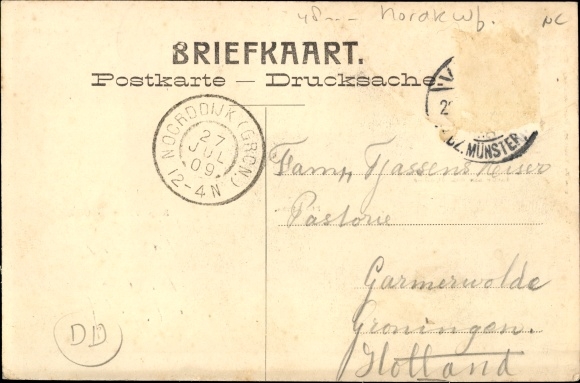 48.-- Nordkwp. NC
BRIEFKAART.
Postkarte — Drucksache
NOORDDIJK (GRON.)
27
JUL
09
12-4N
2
BZ. MÜNSTER
Fam. Tjassens Keiser
Pastorie
Garmerwolde
Groningen.
Holland
DD